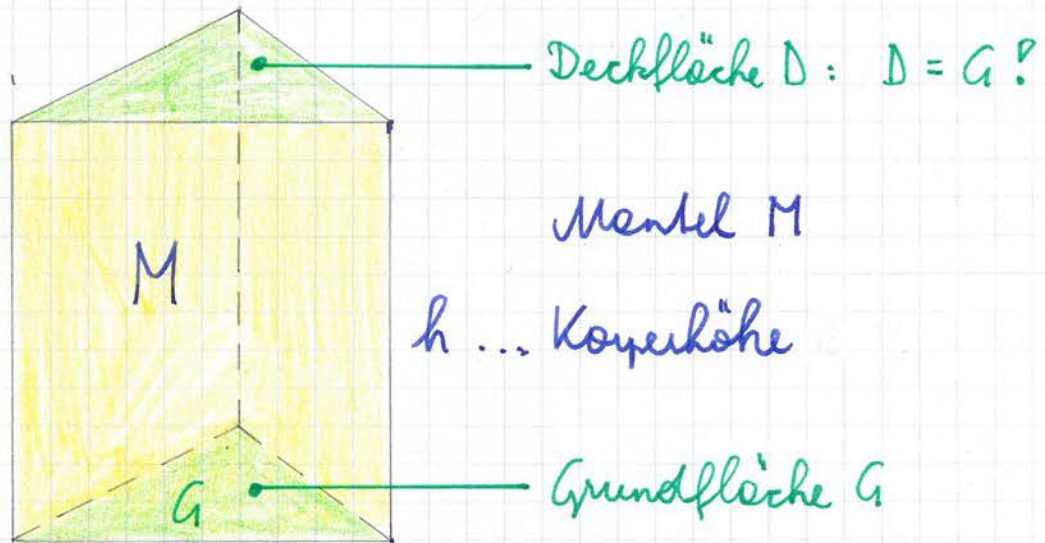 Deckfläche D: D = G!
M
Mantel M
h ... Körperhöhe
G
Grundfläche G